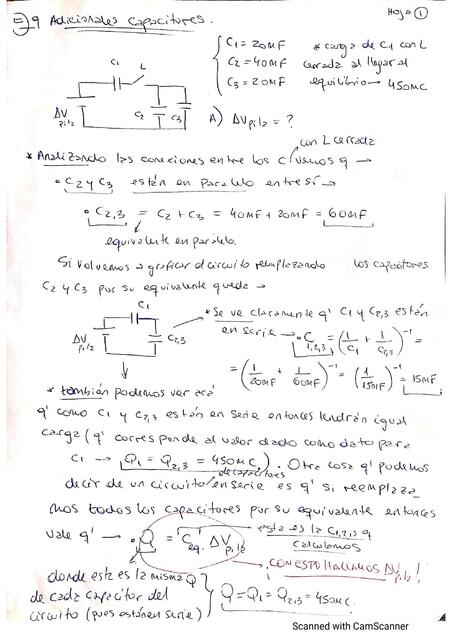 Hoja 1
Ej 9 Adicionales Capacitores.
C1 = 20MF * carga de C1 con L
C2 = 40MF cerrada al llegar al
C3 = 20MF equilibrio → 450MC
C1 L
ΔVpila C2 C3 A) ΔVpila = ?
con L cerrada
* Analizando las conexiones entre los C vemos q' →
• C2 y C3 están en paralelo entre sí →
• C2,3 = C2 + C3 = 40MF + 20MF = 60MF
equivalente en paralelo.
Si volvemos a graficar el circuito remplazando los capacitores
C2 y C3 por su equivalente queda →
C1
ΔVpila C2,3
* Se ve claramente q' C1 y C2,3 están
en serie → • C1,2,3 = (1/C1 + 1/C2,3)^-1 =
= (1/20MF + 1/60MF)^-1 = (1/15MF)^-1 = 15MF
* también podemos ver acá
q' como C1 y C2,3 están en serie entonces tendrán igual
carga (q' corresponde al valor dado como dato para
C1 → Q1 = Q2,3 = 450MC). Otra cosa q' podemos
de capacitores
decir de un circuito en serie es q' si reemplaza_
mos todos los capacitores por su equivalente entonces
vale q' → • Q = Ceq. ΔVpila
esta es la C1,2,3 q
calculamos
CON ESTO HALLAMOS ΔVpila!
donde esta es la misma Q
de cada capacitor del
circuito (pues están en serie)
Q = Q1 = Q2,3 = 450MC.
Scanned with CamScanner